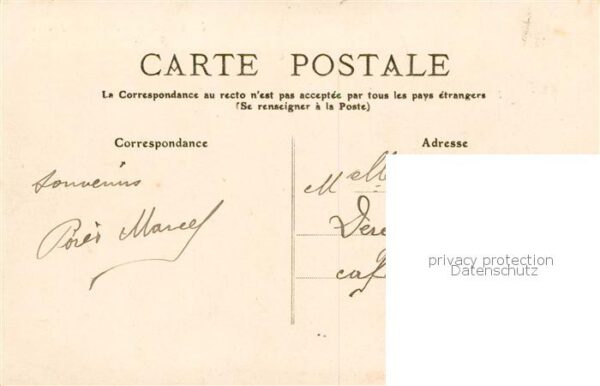 CARTE POSTALE
La Correspondance au recto n'est pas acceptée par tous les pays étrangers
(Se renseigner à la Poste)
Correspondance
Adresse
Souvenirs
Marcel
privacy protection
Datenschutz